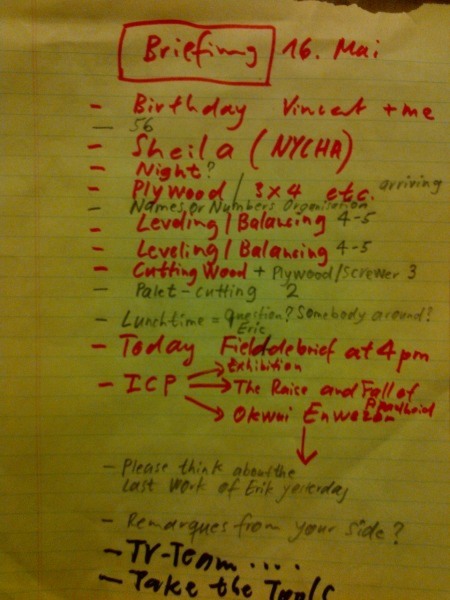 Briefing 16. Mai
- Birthday Vincent + me
- 56
- Sheila (NYCHA)
- Night?
- Plywood / 3x4 etc. arriving
- Names or Numbers Organisation
- Leveling / Balancing 4-5
- Leveling / Balancing 4-5
- Cutting Wood + Plywood/Screwer 3
- Palet-cutting 2
- Lunchtime = question? Somebody around?
Eric
- Today Fielddebrief at 4 pm
Exhibition
- ICP The Raise and Fall of
Okwui Enwezor
- Please think about the
last work of Erik yesterday
- Remarques from your side?
- TV-Team ....
- Take the Tools